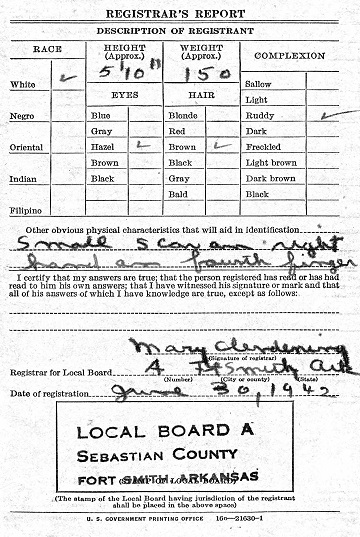 REGISTRAR'S REPORT
DESCRIPTION OF REGISTRANT
RACE HEIGHT (Approx.) WEIGHT (Approx.) COMPLEXION
5' 10" 150
White
EYES HAIR
Sallow
Light
Negro Blue Blonde Ruddy
Gray Red Dark
Oriental Hazel Brown Freckled
Brown Black Light brown
Indian Black Gray Dark brown
Bald Black
Filipino
Other obvious physical characteristics that will aid in identification
Small scar on right
hand on fourth finger
I certify that my answers are true; that the person registered has read or has had
read to him his own answers; that I have witnessed his signature or mark and that
all of his answers of which I have knowledge are true, except as follows:
Mary Clendening
(Signature of registrar)
Registrar for Local Board A Ft Smith Ark
(Number) (City or county) (State)
Date of registration June 30, 1942
LOCAL BOARD A
SEBASTIAN COUNTY
FORT SMITH, ARKANSAS
(STAMP OF LOCAL BOARD)
(The stamp of the Local Board having jurisdiction of the registrant
shall be placed in the above space)
U. S. GOVERNMENT PRINTING OFFICE 16—21630-1